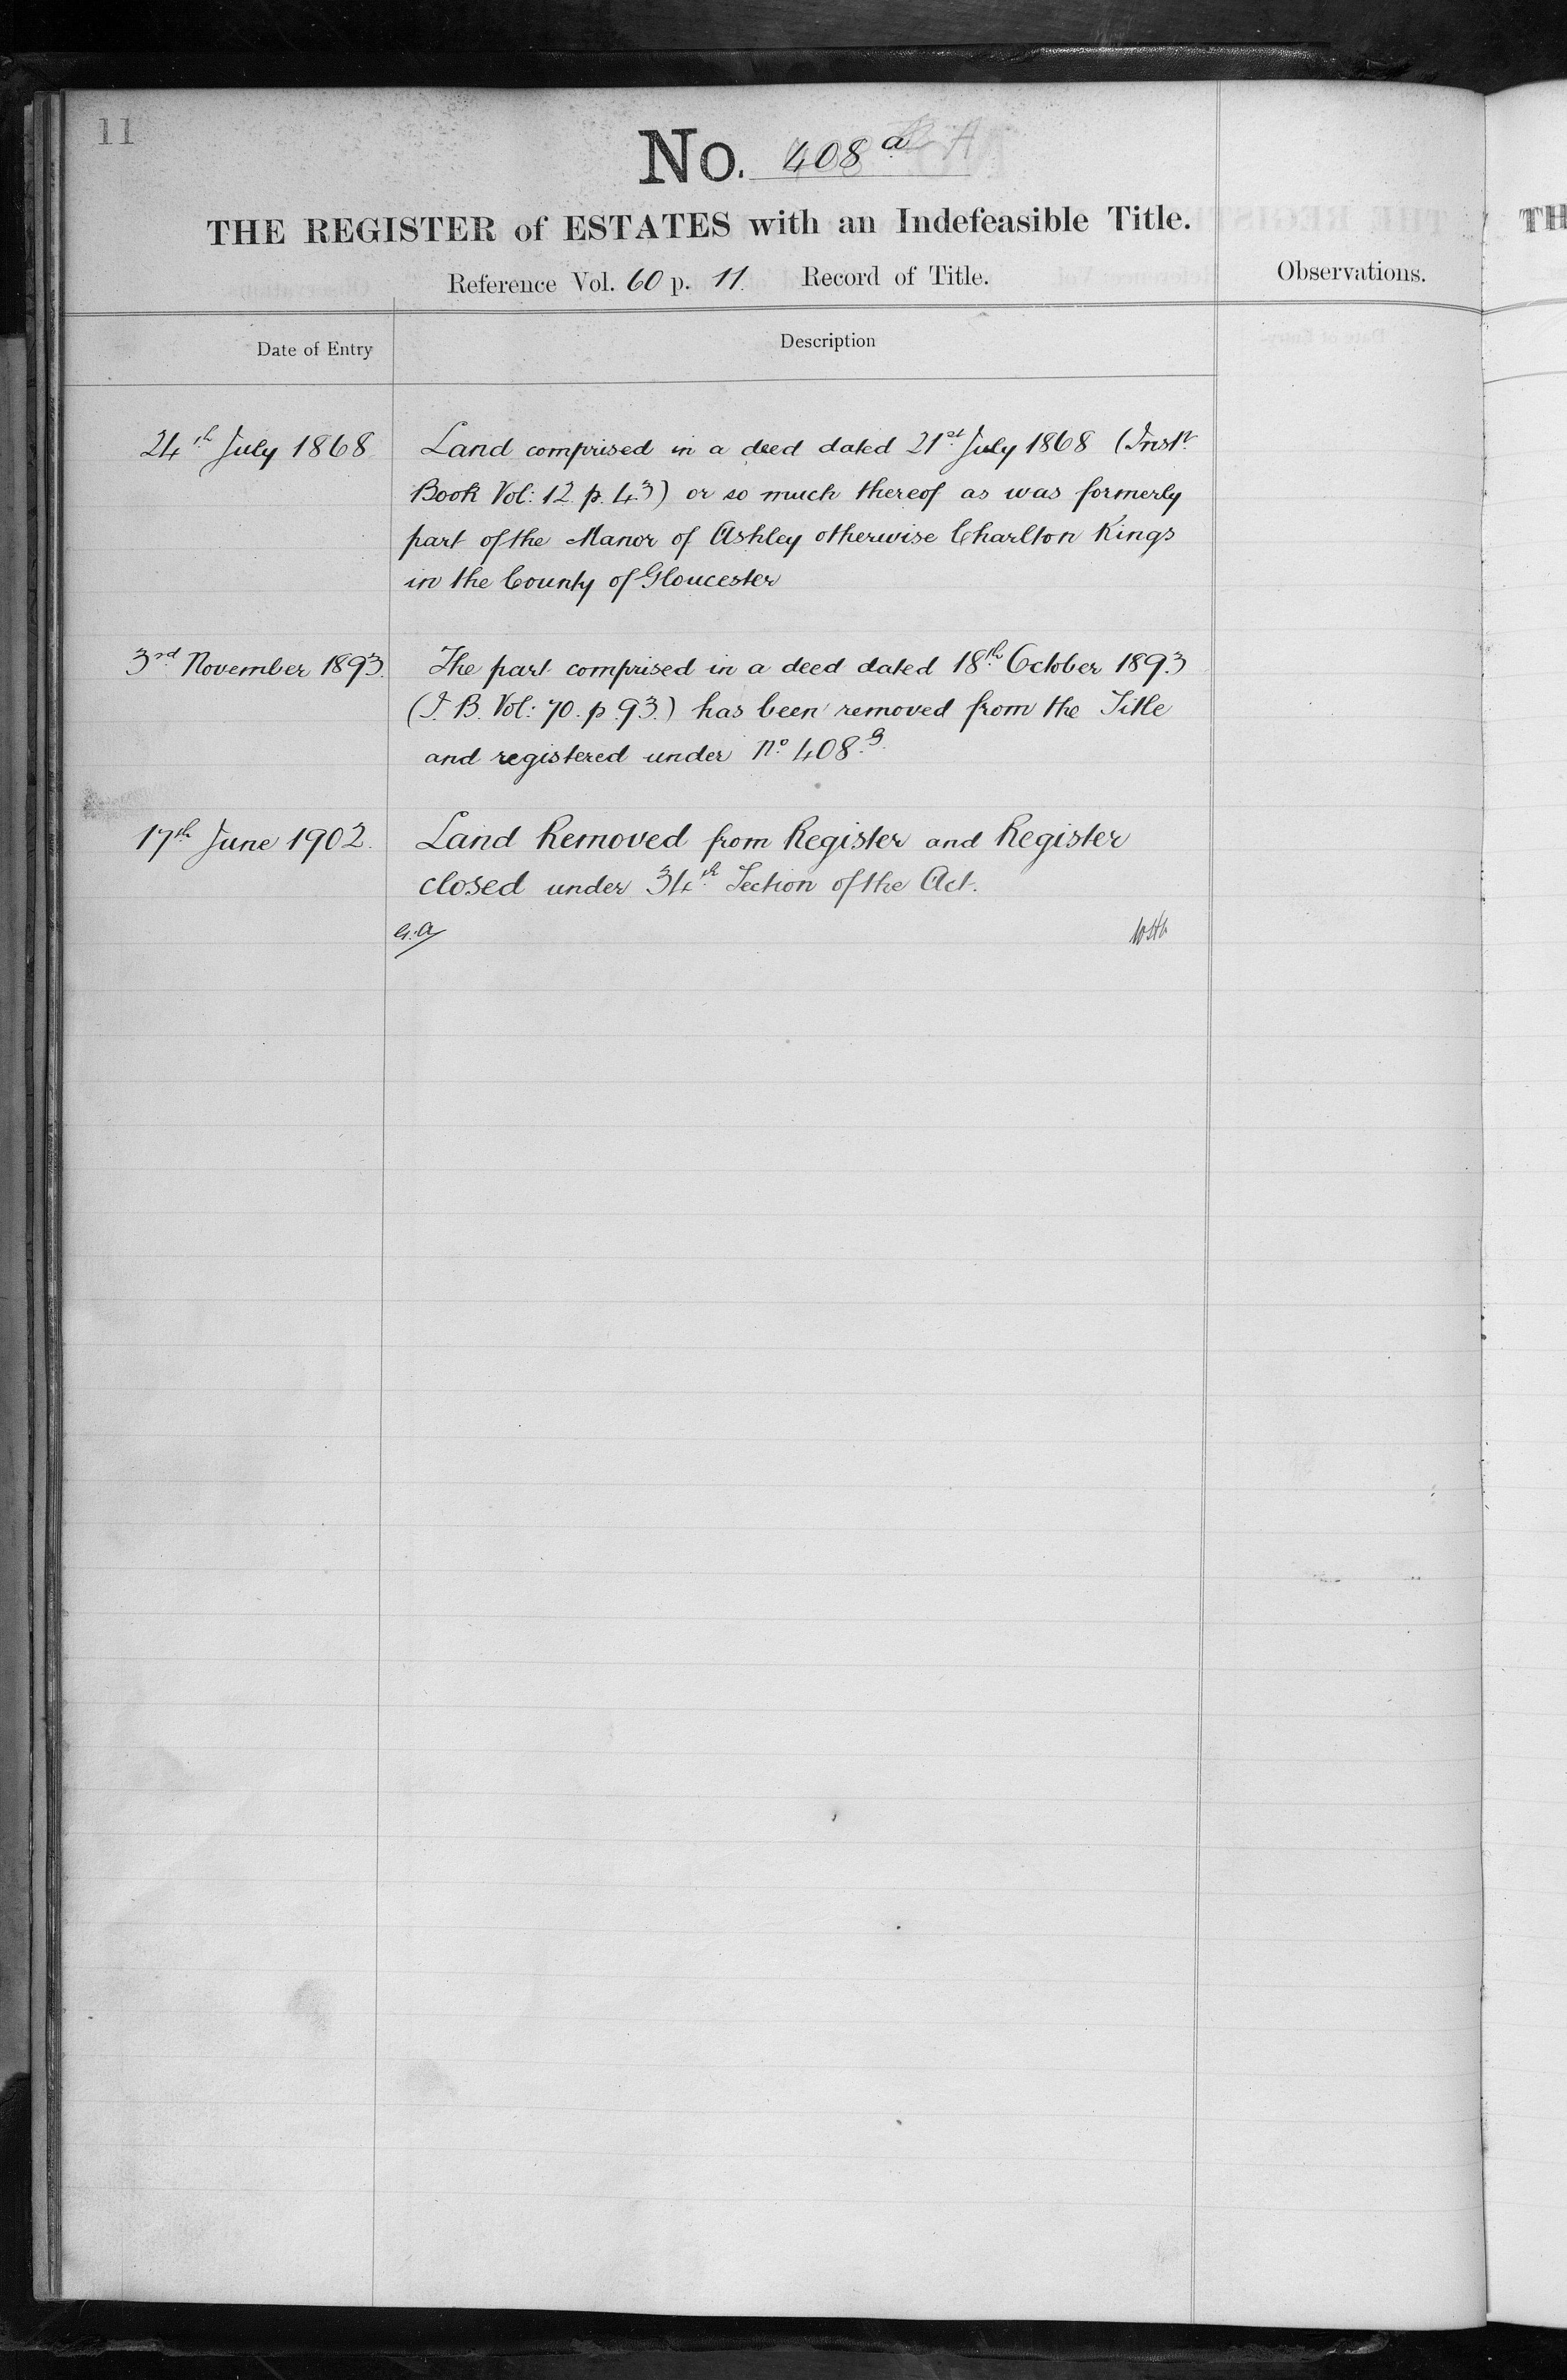 11
No. 408 a
THE REGISTER of ESTATES with an Indefeasible Title.
Reference Vol. 60 p. 11. Record of Title.
Observations.
TH
Date of Entry
Description
24th July 1868
Land comprised in a deed dated 21st July 1868 (Instt
Book Vol: 12 p. 43) or so much thereof as was formerly
part of the Manor of Ashley otherwise Charlton Kings
in the County of Gloucester
3rd November 1893.
The part comprised in a deed dated 18th October 1893
(I. B. Vol: 70. p 93.) has been removed from the Title
and registered under No. 408.
17th June 1902.
Land Removed from Register and Register
closed under 34th Section of the Act.